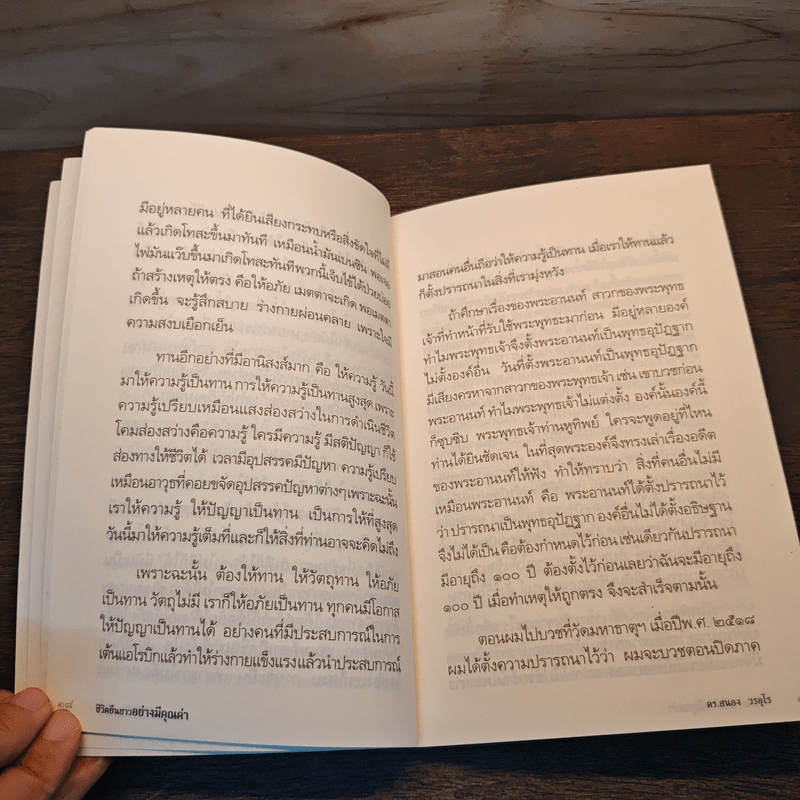 มีอยู่หลายคน ที่ได้ยินเสียงกระทบหรือสิ่งขัดใจที่ไม่ดี
แล้วเกิดโทสะขึ้นมาทันที เหมือนน้ำมันเบนซิน พอเจอ
ไฟมันแว๊บขึ้นมาเกิดโทสะทันทีพวกนี้เจ็บไข้ได้ป่วยบ่อย
ถ้าสร้างเหตุให้ตรง คือให้อภัย เมตตาจะเกิด พอเมตตา
เกิดขึ้น จะรู้สึกสบาย ร่างกายผ่อนคลาย เพราะใจมี
ความสงบเยือกเย็น
ทานอีกอย่างที่มีอานิสงส์มาก คือ ให้ความรู้ วันนี้
มาให้ความรู้เป็นทาน การให้ความรู้เป็นทานสูงสุด เพราะ
ความรู้เปรียบเหมือนแสงส่องสว่างในการดำเนินชีวิต
โคมส่องสว่างคือความรู้ ใครมีความรู้ มีสติปัญญา ก็ใช้
ส่องทางให้ชีวิตได้ เวลามีอุปสรรคมีปัญหา ความรู้เปรียบ
เหมือนอาวุธที่คอยขจัดอุปสรรคปัญหาต่างๆเพราะฉะนั้น
เราให้ความรู้ ให้ปัญญาเป็นทาน เป็นการให้ที่สูงสุด
วันนี้มาให้ความรู้เต็มที่และก็ให้สิ่งที่ท่านอาจจะคิดไม่ถึง
เพราะฉะนั้น ต้องให้ทาน ให้วัตถุทาน ให้อภัย
เป็นทาน วัตถุไม่มี เราก็ให้อภัยเป็นทาน ทุกคนมีโอกาส
ให้ปัญญาเป็นทานได้ อย่างคนที่มีประสบการณ์ในการ
เต้นแอโรบิกแล้วทำให้ร่างกายแข็งแรงแล้วนำประสบการณ์
ชีวิตยืนยาวอย่างมีคุณค่า
มาสอนคนอื่นถือว่าให้ความรู้เป็นทาน เมื่อเราให้ทานแล้ว
ก็ตั้งปรารถนาในสิ่งที่เรามุ่งหวัง
ถ้าศึกษาเรื่องของพระอานนท์ สาวกของพระพุทธ
เจ้าที่ทำหน้าที่รับใช้พระพุทธะมาก่อน มีอยู่หลายองค์
ทำไมพระพุทธเจ้าจึงตั้งพระอานนท์เป็นพุทธอุปัฏฐาก
ไม่ตั้งองค์อื่น วันที่ตั้งพระอานนท์เป็นพุทธอุปัฏฐาก
มีเสียงครหาจากสาวกของพระพุทธเจ้า เช่น เขาบวชก่อน
พระอานนท์ ทำไมพระพุทธเจ้าไม่แต่งตั้ง องค์นั้นองค์นี้
ก็ซุบซิบ พระพุทธเจ้าท่านหูทิพย์ ใครจะพูดอยู่ที่ไหน
ท่านได้ยินชัดเจน ในที่สุดพระองค์จึงทรงเล่าเรื่องอดีต
ของพระอานนท์ให้ฟัง ทำให้ทราบว่า สิ่งที่คนอื่นไม่มี
เหมือนพระอานนท์ คือ พระอานนท์ได้ตั้งปรารถนาไว้
ว่า ปรารถนาเป็นพุทธอุปัฏฐาก องค์อื่นไม่ได้ตั้งอธิษฐาน
จึงไม่ได้เป็น คือต้องกำหนดไว้ก่อน เช่นเดียวกันปรารถนา
มีอายุถึง ๑๐๐ ปี ต้องตั้งไว้ก่อนเลยว่าฉันจะมีอายุถึง
๑๐๐ ปี เมื่อทำเหตุให้ถูกตรง จึงจะสำเร็จตามนั้น
ตอนผมไปบวชที่วัดมหาธาตุฯ เมื่อปีพ.ศ. ๒๕๑๘
ผมได้ตั้งความปรารถนาไว้ว่า ผมจะบวชตอนปิดภาค
ดร.สนอง วรอุไร